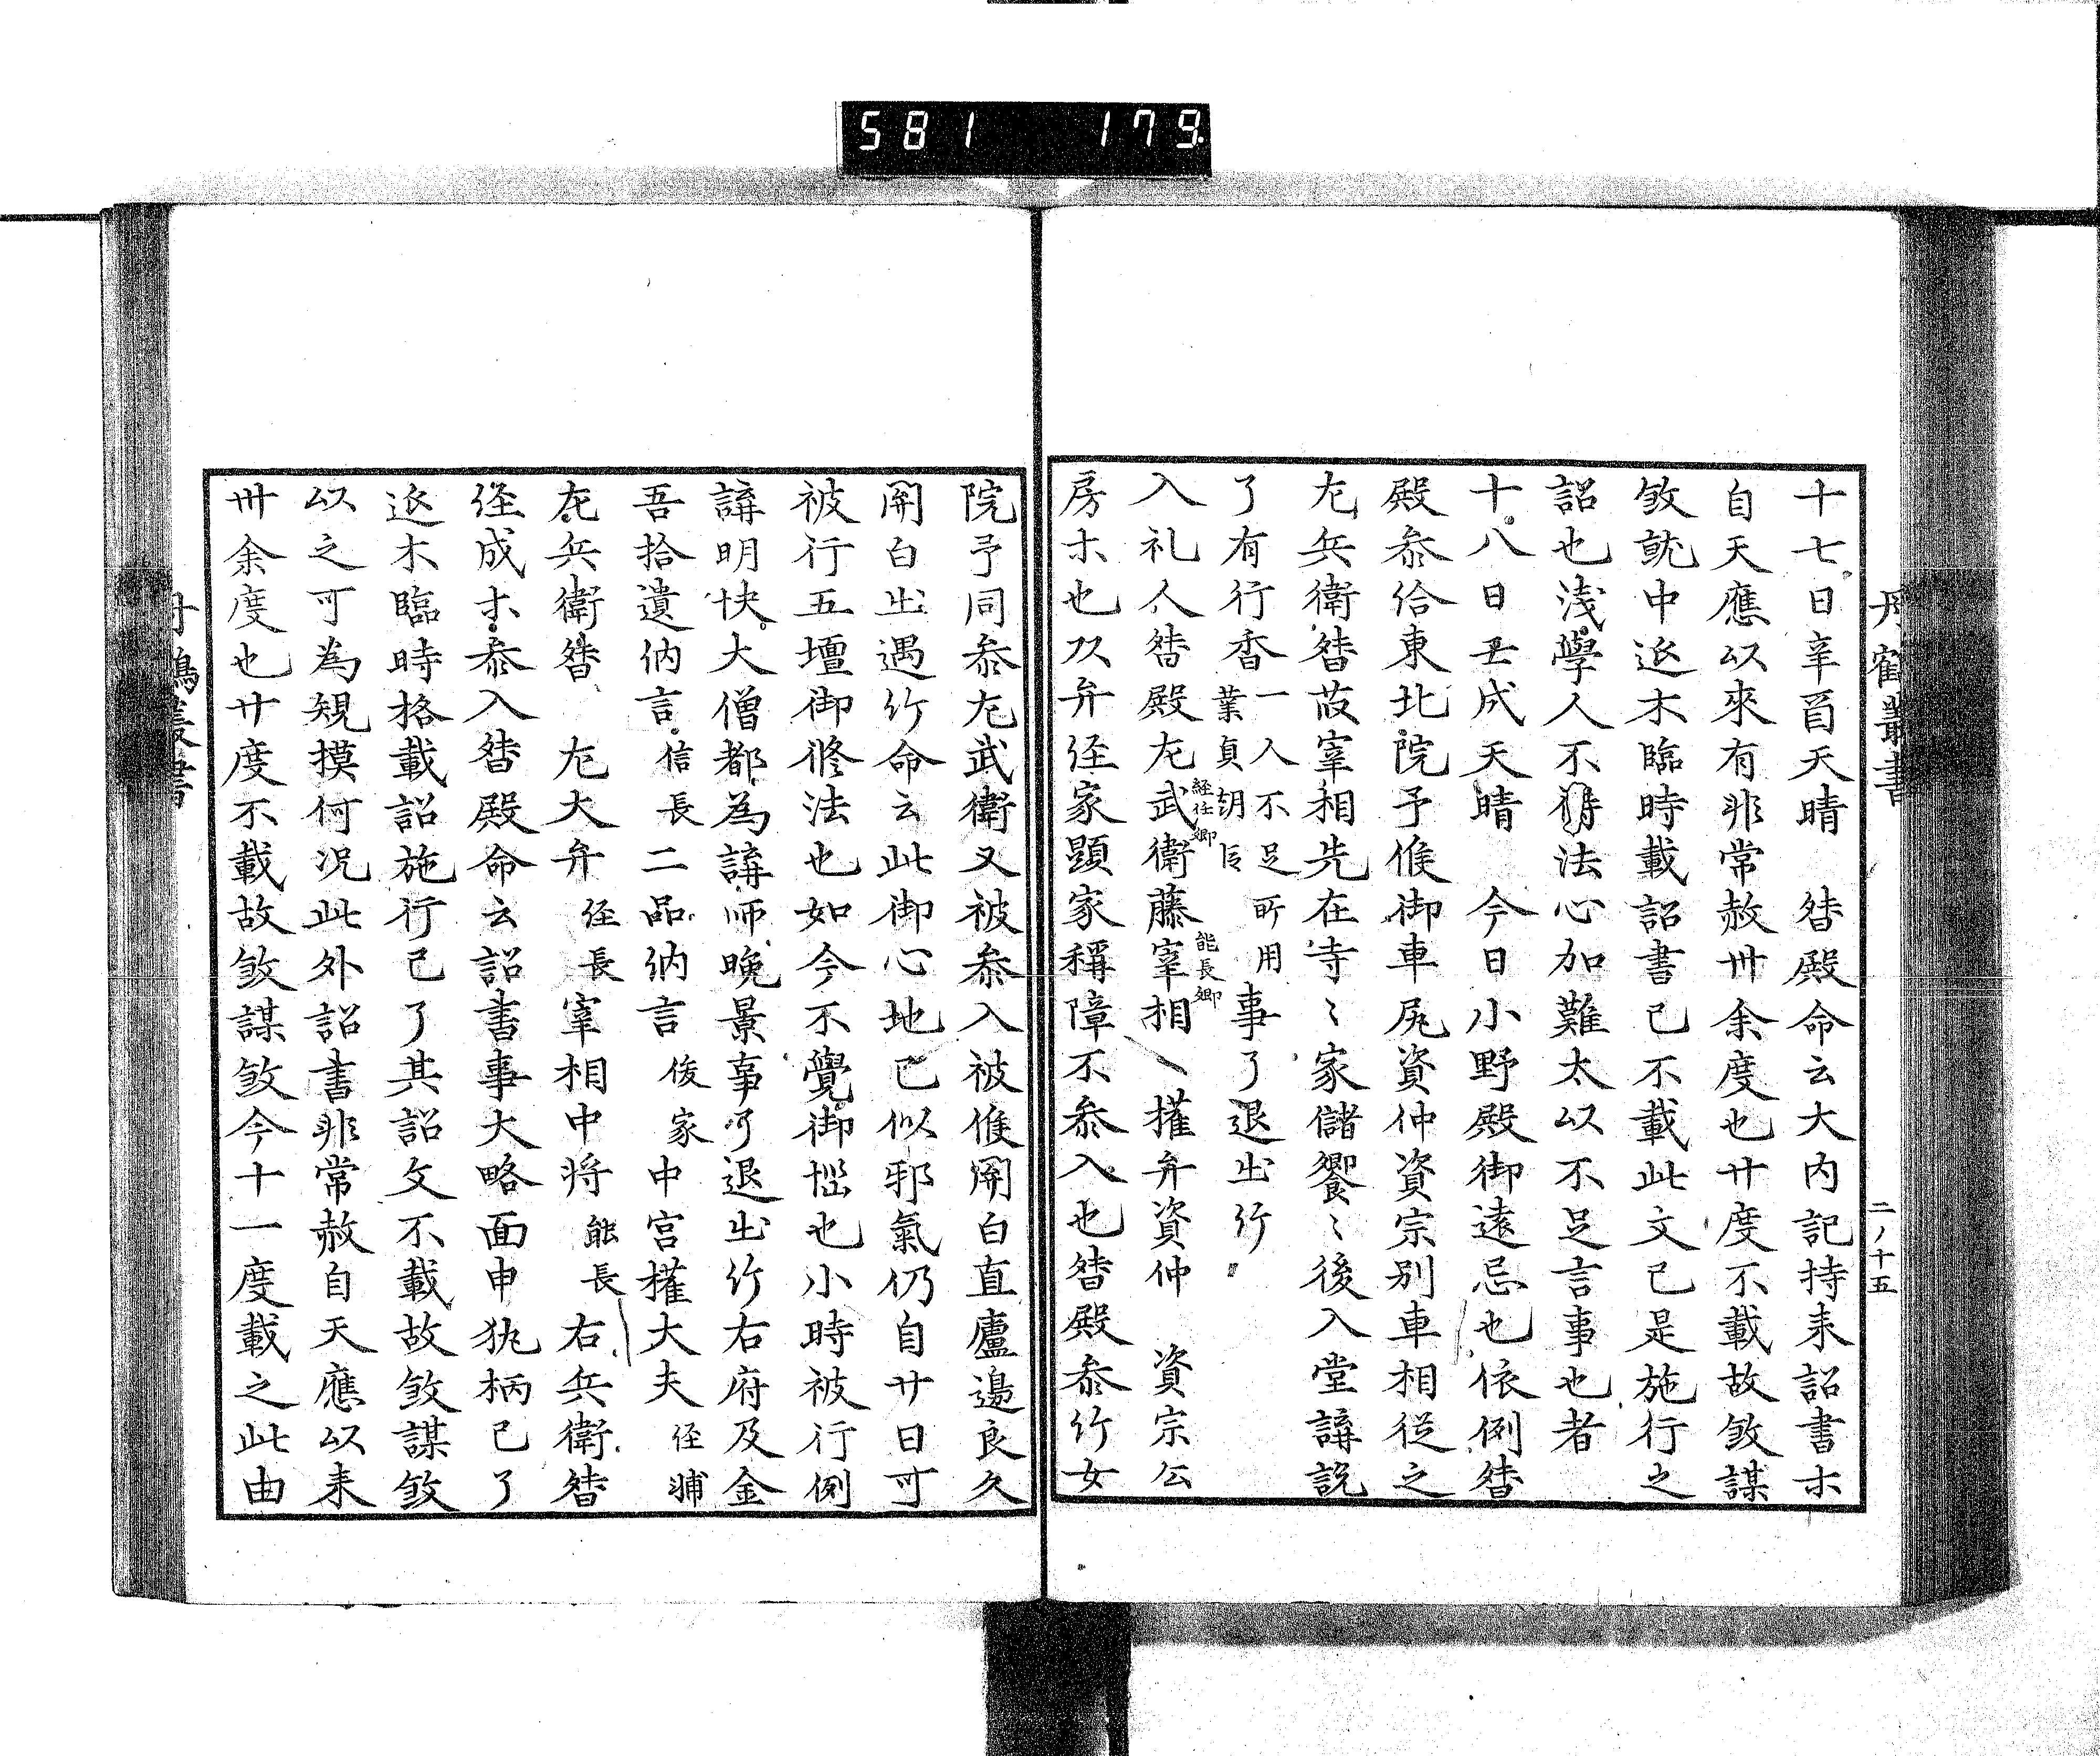 581 179
丹鶴叢書 二ノ十五
十七日辛酉天晴 㫪殿命云大内記持来詔書ホ
自天應以來有非常赦卅余度也廿度不載故敓謀
敓就中近木臨時載詔書已不載此文已是施行之
詔也浅學人不得法心加難太以不足言事也者
十八日壬戌天晴 今日小野殿御遠忌也依例㫪
殿参给東北院予候御車尻資仲資宗別車相従之
尢兵衛㫪故宰相先在寺〻家儲饗〻後入堂講説
了有行香一人不足所用業貞胡臣事了退出行
入礼人㫪殿尢武衛経任卿藤宰相能長卿權弁資仲 資宗公
房ホ也双弁径家顕家稱障不参入也㫪殿参竹女
院予同参尢武衛又被参入被候関白直廬邊良久
関白出遇竹命云此御心地已似邪氣仍自廿日可
被行五壇御修法也如今不覺御悩也小時被行例
講明快大僧都為講師晩景事了退出竹右府及金
吾拾遺納言信長二品納言俊家中宮權大夫径輔
尢兵衛㫪 尢大弁径長宰相中将能長右兵衛㫪
径成ホ参入㫪殿命云詔書事大略面申执柄已了
近木臨時格載詔施行已了其詔文不載故敓謀敓
以之可為規摸何况此外詔書非常赦自天應以来
卅余度也廿度不載故敓謀敓今十一度載之此由